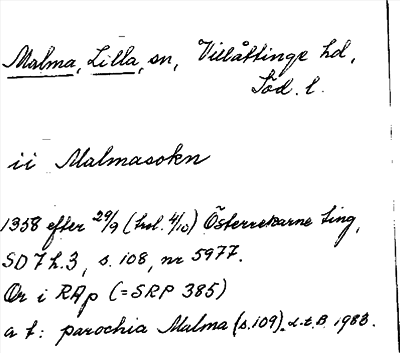 Malma, Lilla, sn, Villåttinge hd,
Söd. l.
ii Malmasokn
1358 efter 29/9 (trol. 4/10) Österrekarne ting,
SD 7 h.3, s. 108, nr 5977.
Or i RAp (=SRP 385)
a t: parochia Malma (s.109). d.t.B. 1983.